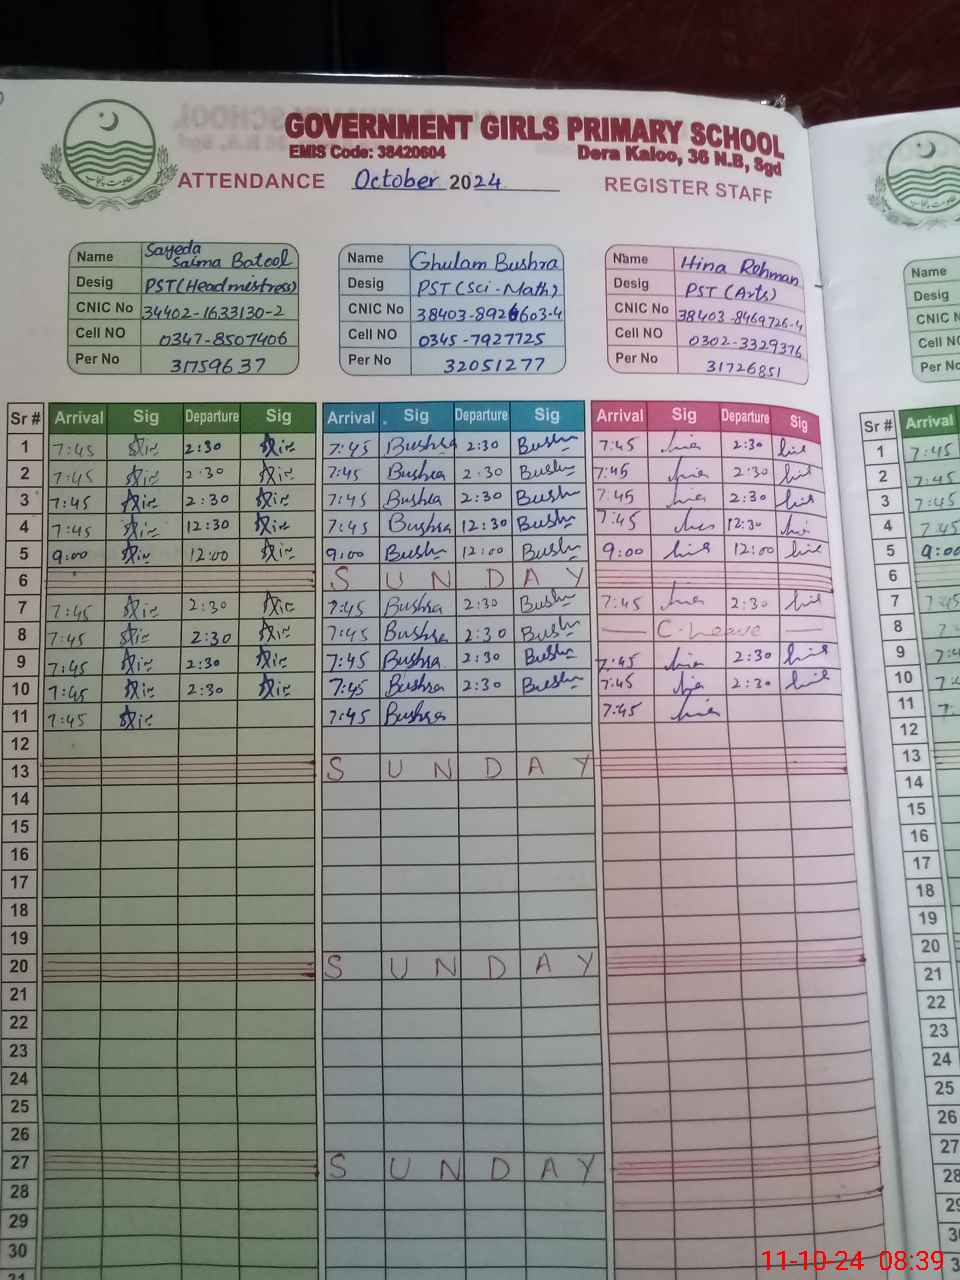 GOVERNMENT GIRLS PRIMARY SCHOOL
EMIS Code: 38420604 Dera Kaloo, 36 N.B, Sgd
ATTENDANCE October 2024 REGISTER STAFF
Name Sayeda Saima Batool
Desig PST(Headmistress)
CNIC No 34402-1633130-2
Cell NO 0347-8507406
Per No 31759637
Name Ghulam Bushra
Desig PST(Sci-Math)
CNIC No 38403-8926603-4
Cell NO 0345-7927725
Per No 32051277
Name Hina Rehman
Desig PST (Arts)
CNIC No 38403-8469726-4
Cell NO 0302-3329376
Per No 31726851
Name
Desig
CNIC N
Cell NO
Per No
Sr # Arrival Sig Departure Sig Arrival Sig Departure Sig Arrival Sig Departure Sig Sr # Arrival
1 7:45 2:30 7:45 Bushra 2:30 Bushra 7:45 2:30 1 7:45
2 7:45 2:30 7:45 Bushra 2:30 Bushra 7:45 2:30 2 7:45
3 7:45 2:30 7:45 Bushra 2:30 Bushra 7:45 2:30 3 7:45
4 7:45 12:30 7:45 Bushra 12:30 Bushra 7:45 12:30 4 7:45
5 9:00 12:00 9:00 Bushra 12:00 Bushra 9:00 12:00 5 9:00
6 SUNDAY 6
7 7:45 2:30 7:45 Bushra 2:30 Bushra 7:45 2:30 7 7:45
8 7:45 2:30 7:45 Bushra 2:30 Bushra C.Leave 8
9 7:45 2:30 7:45 Bushra 2:30 Bushra 7:45 2:30 9
10 7:45 2:30 7:45 Bushra 2:30 Bushra 7:45 2:30 10
11 7:45 7:45 Bushra 7:45 11
12 12
13 SUNDAY 13
14 14
15 15
16 16
17 17
18 18
19 19
20 SUNDAY 20
21 21
22 22
23 23
24 24
25 25
26 26
27 SUNDAY 27
28 28
29
30
11-10-24 08:39